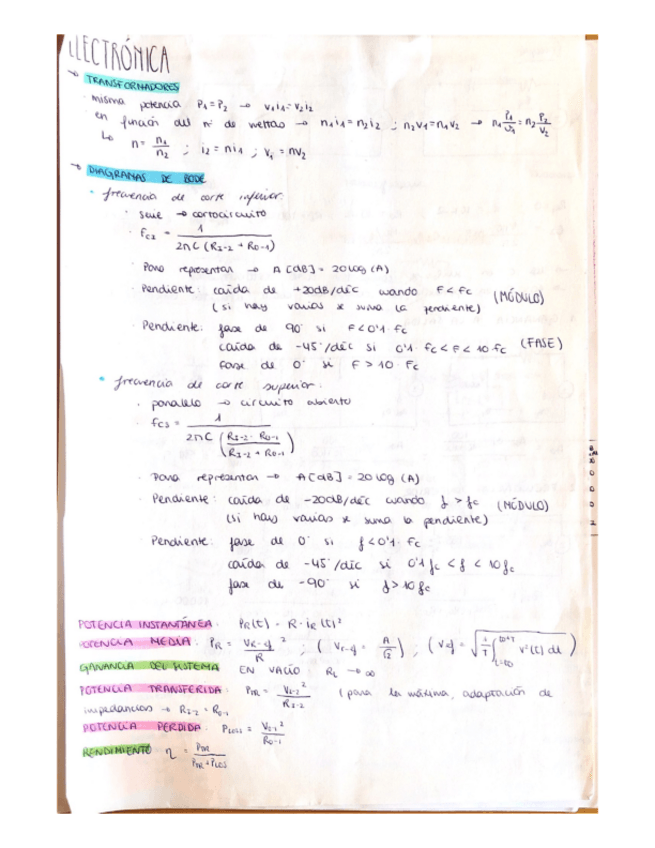 ELECTRÓNICA
→ TRANSFORMADORES
· misma potencia P1=P2 → v1i1=v2i2
en función del nº de vueltas → n1i1=n2i2 ; n2v1=n1v2 → n1 P1/V1 = n2 P2/V2
↳ n= n1/n2 ; i2=ni1 ; v1=nv2
→ DIAGRAMAS DE BODE
• frecuencia de corte inferior:
· serie → cortocircuito
· fci = 1/(2πC(Ri-2 + Ro-1))
· Para representar → A[dB]= 20log(A)
· Pendiente: caída de +20dB/dec cuando F<Fc (MÓDULO)
(si hay varias se suma la pendiente)
· Pendiente: fase de 90° si F<0'1·fc
caída de -45°/dec si 0'1·fc<F<10·fc (FASE)
fase de 0° si F>10·Fc
• frecuencia de corte superior:
· paralelo → circuito abierto
· fcs = 1/(2πC((Ri-2·Ro-1)/(Ri-2+Ro-1)))
· Para representar → A[dB]= 20log(A)
· Pendiente: caída de -20dB/dec cuando f>fc (MÓDULO)
(si hay varias se suma la pendiente)
· Pendiente: fase de 0° si f<0'1·fc
caída de -45°/dec si 0'1fc<f<10fc
fase de -90° si f>10fc
POTENCIA INSTANTÁNEA: PR(t)= R·iR(t)²
POTENCIA MEDIA: PR = VR-ef²/R ; (Vr-ef = A/√2) ; (Vef = √(1/T ∫ v²(t)dt))
GANANCIA DEL SISTEMA EN VACÍO RL→∞
POTENCIA TRANSFERIDA: PTR = Vi-2²/Ri-2 (para la máxima, adaptación de
impedancias → Ri-2=Ro-1
POTENCIA PERDIDA: PLOSS = Vz-1²/Ro-1
RENDIMIENTO η = PTR/(PTR+PLOS)